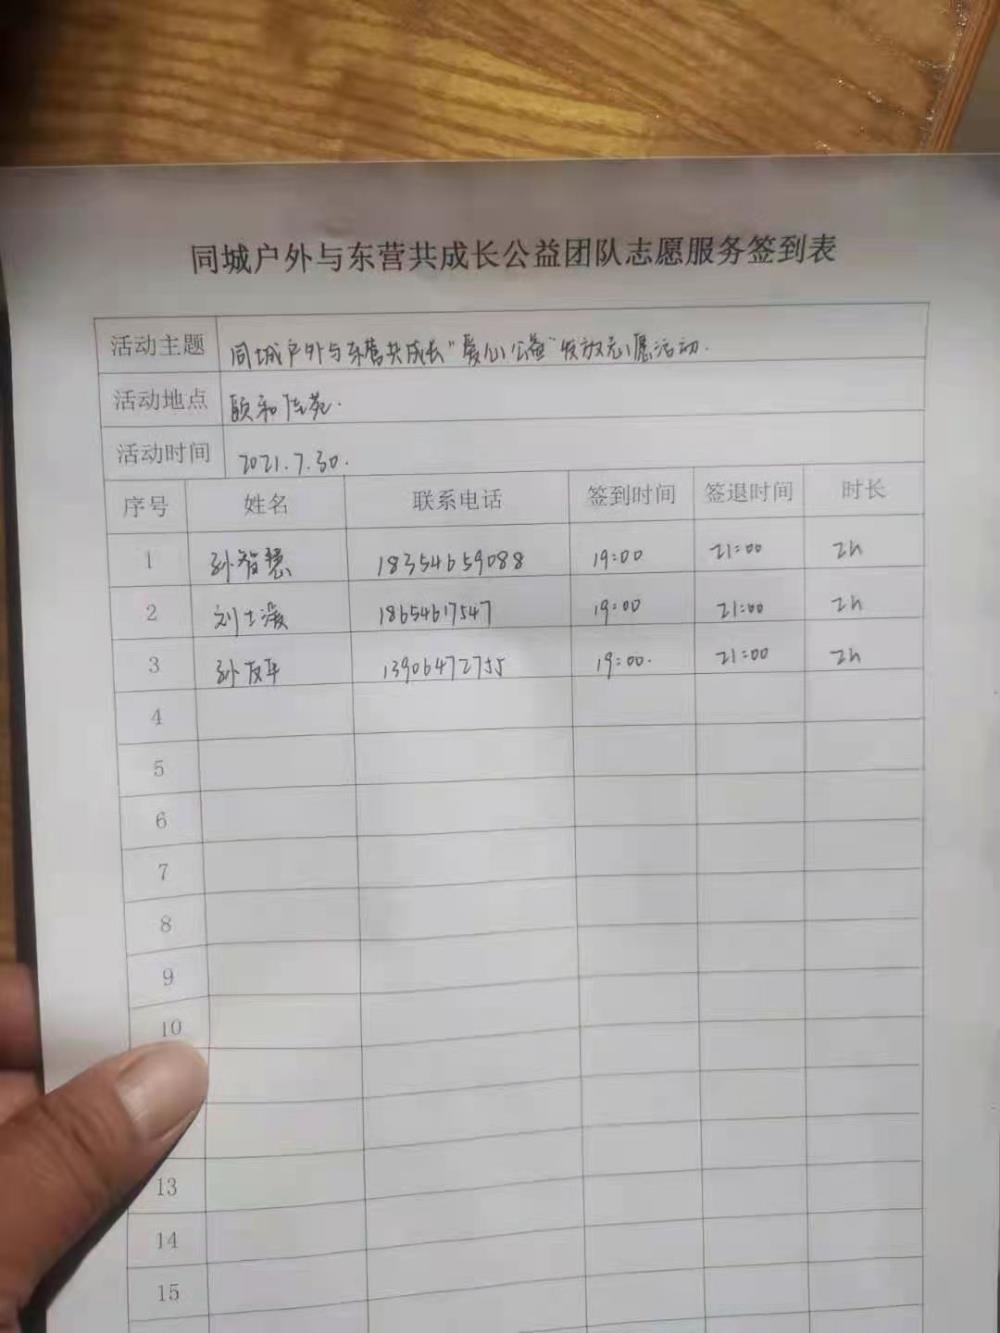 同城户外与东营共成长公益团队志愿服务签到表
活动主题 同城户外与东营共成长"爱心公益"发放志愿活动.
活动地点 颐和佳苑.
活动时间 2021.7.30.
序号 姓名 联系电话 签到时间 签退时间 时长
1 孙智慧 18354659088 19:00 21:00 2h
2 刘士 18654617547 19:00 21:00 2h
3 孙友军 13906472755 19:00. 21:00 2h
4
5
6
7
8
9
10
13
14
15